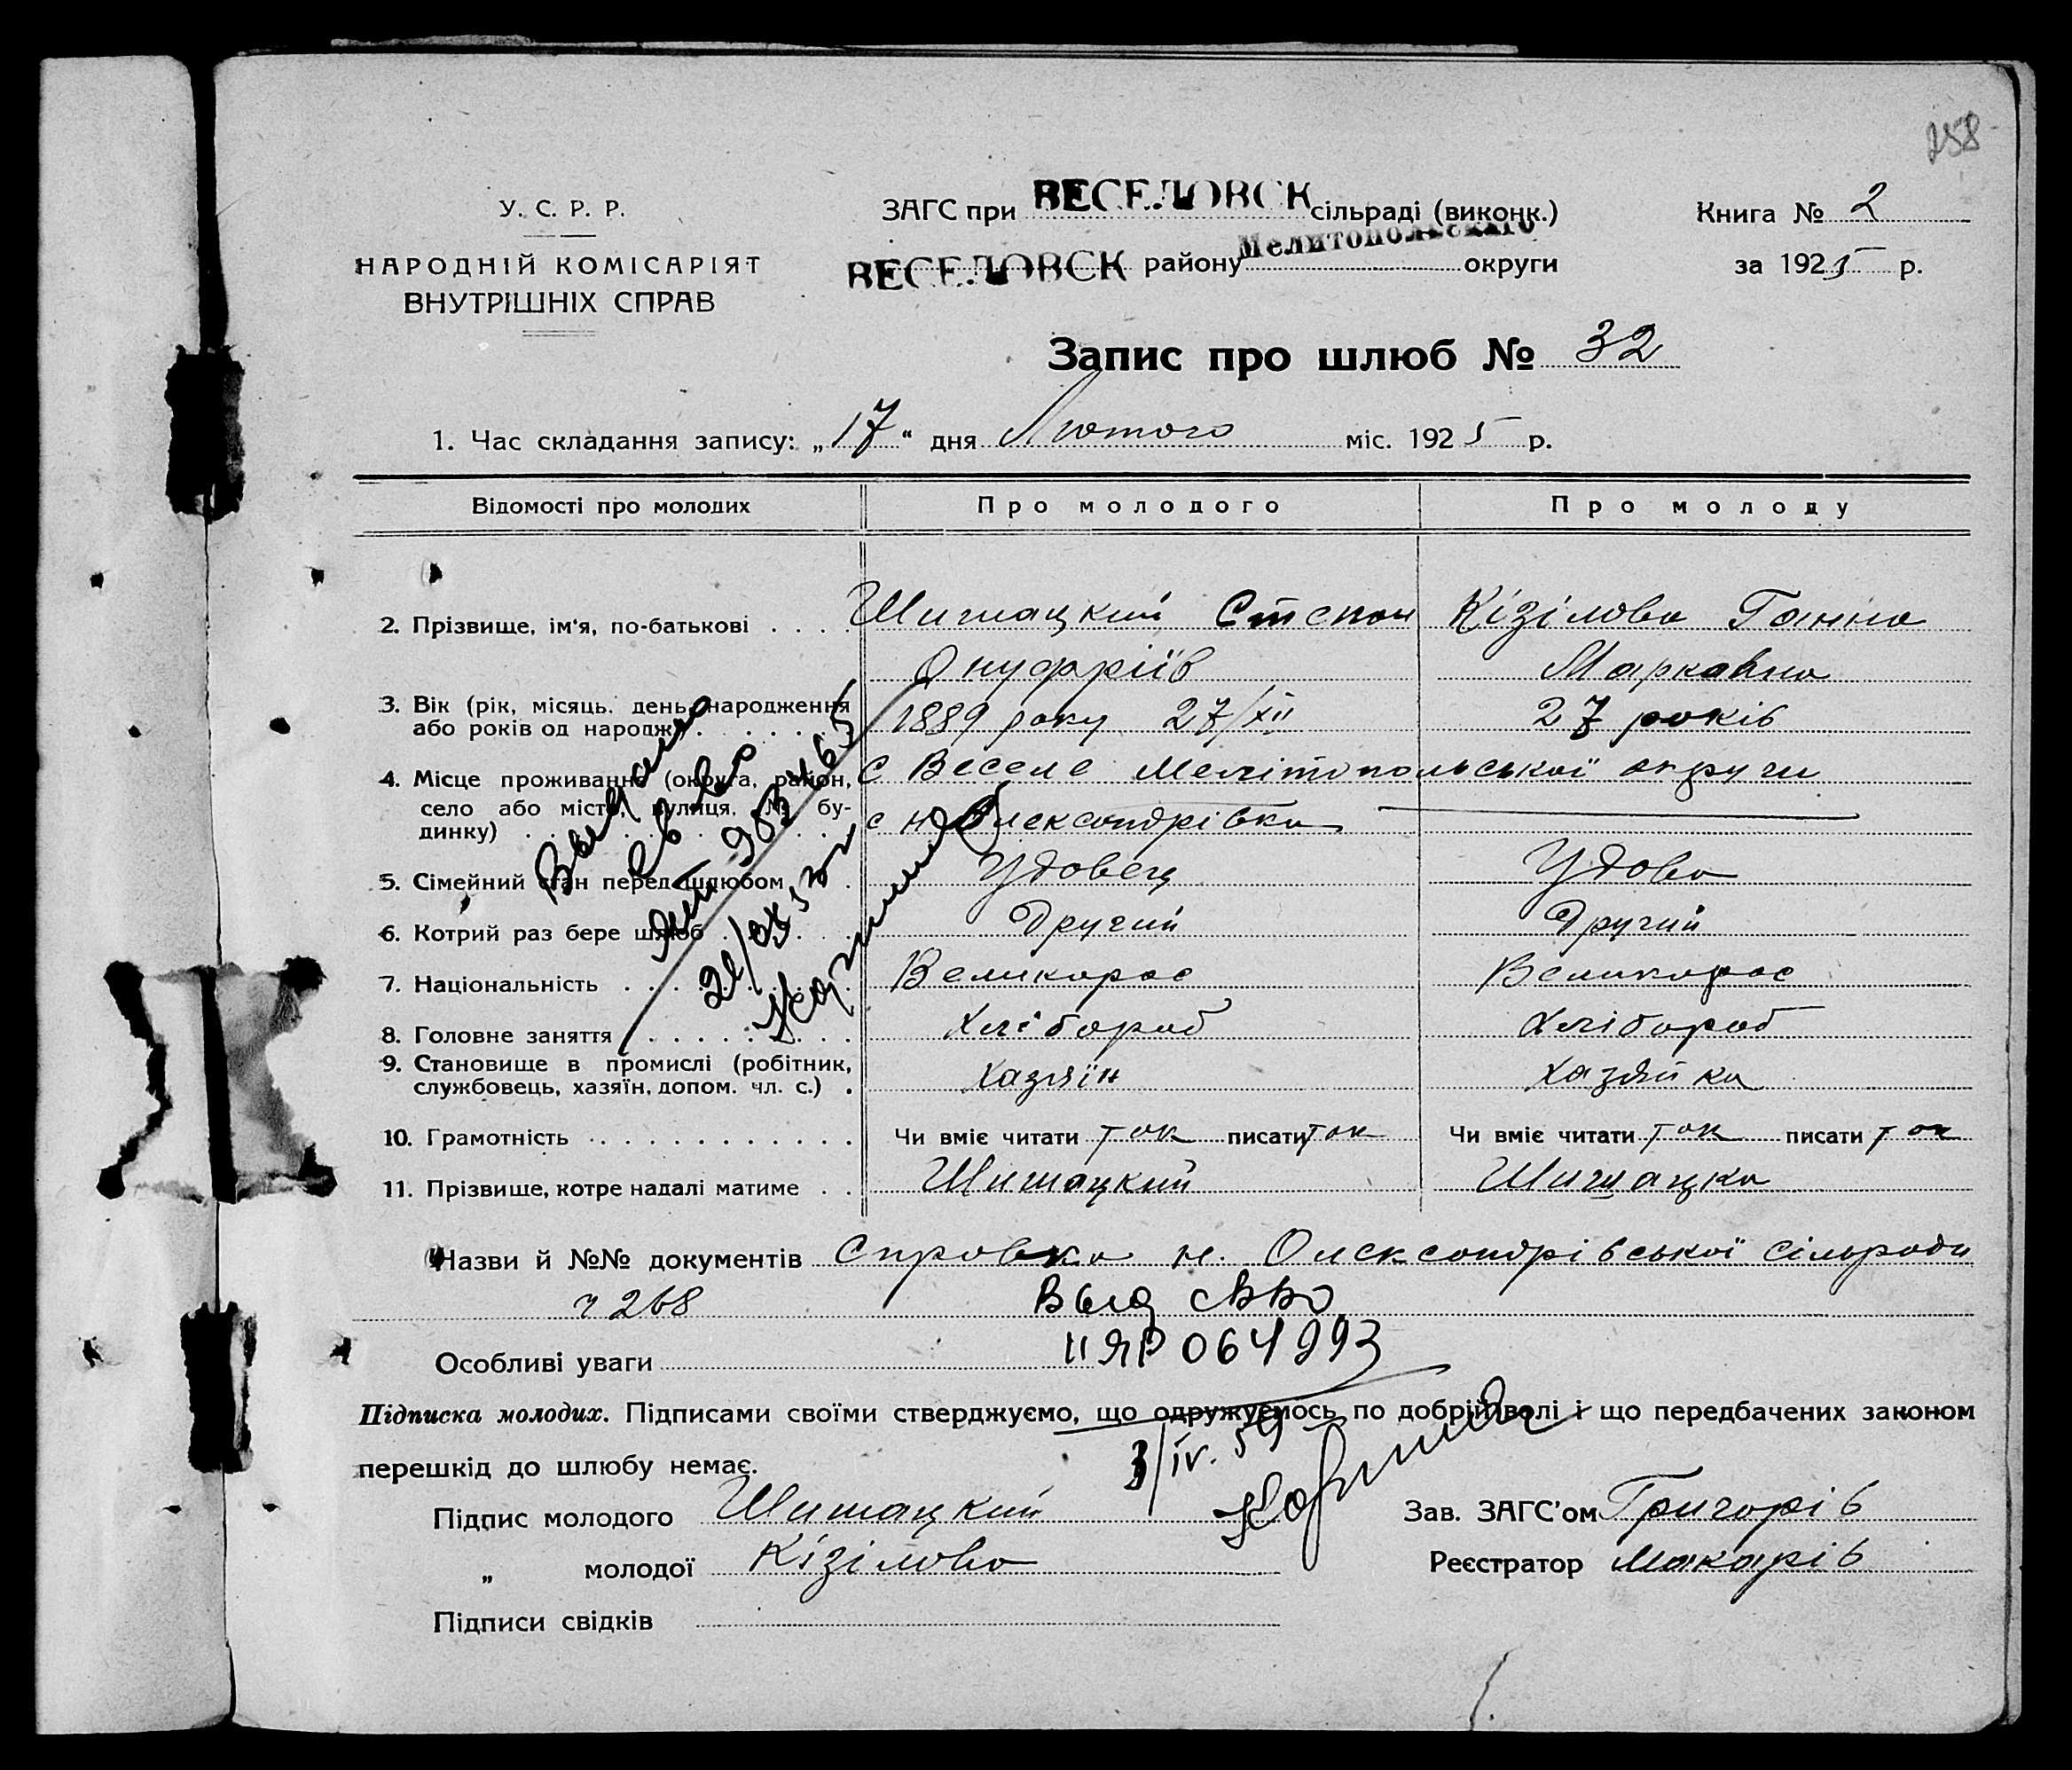 258
У. С. Р. Р.
НАРОДНІЙ КОМІСАРІЯТ
ВНУТРІШНІХ СПРАВ
ЗАГС при ВЕСЕЛОВСК сільраді (виконк.)
ВЕСЕЛОВСК району Мелитопольскаго округи
Книга № 2
за 1925 р.
Запис про шлюб № 32
1. Час складання запису: „17“ дня Лютого міс. 1925 р.
Відомості про молодих Про молодого Про молоду
2. Прізвище, ім'я, по-батькові . . . . Шишацкий Степан Кізілова Ганна
Онуфріїв Маркавна
3. Вік (рік, місяць. день народження
або років од народж.) . . . . . 1889 року 27/XII 27 років
4. Місце проживання (округа, район, с Веселе Мелітопольської округи
село або місто, вулиця, № бу-
динку) . . . . . . . . . с Н Олександрівка
5. Сімейний стан перед шлюбом . . Удовец Удова
6. Котрий раз бере шлюб . . . . Другий Другий
7. Національність . . . . . . Великорос Великорос
8. Головне заняття . . . . . . Хлібороб Хлібороб
9. Становище в промислі (робітник,
службовець, хазяїн, допом. чл. с.) . Хазяїн Хазяйка
10. Грамотність . . . . . . . . . . . . Чи вміє читати так писати так Чи вміє читати так писати так
11. Прізвище, котре надалі матиме . . Шишацкий Шишацка
Выдано
св во
983465
Назви й №№ документів Справка н. Олександрівської сільради
ч 268 Выд свво
II ЯР 064993
Особливі уваги
Підписка молодих. Підписами своїми стверджуємо, що одружуємось по добрій волі і що передбачених законом
перешкід до шлюбу немає.
3/IV. 59
Підпис молодого Шишацкий Зав. ЗАГС'ом Григорів
„ молодої Кізілова Реєстратор Макарів
Підписи свідків